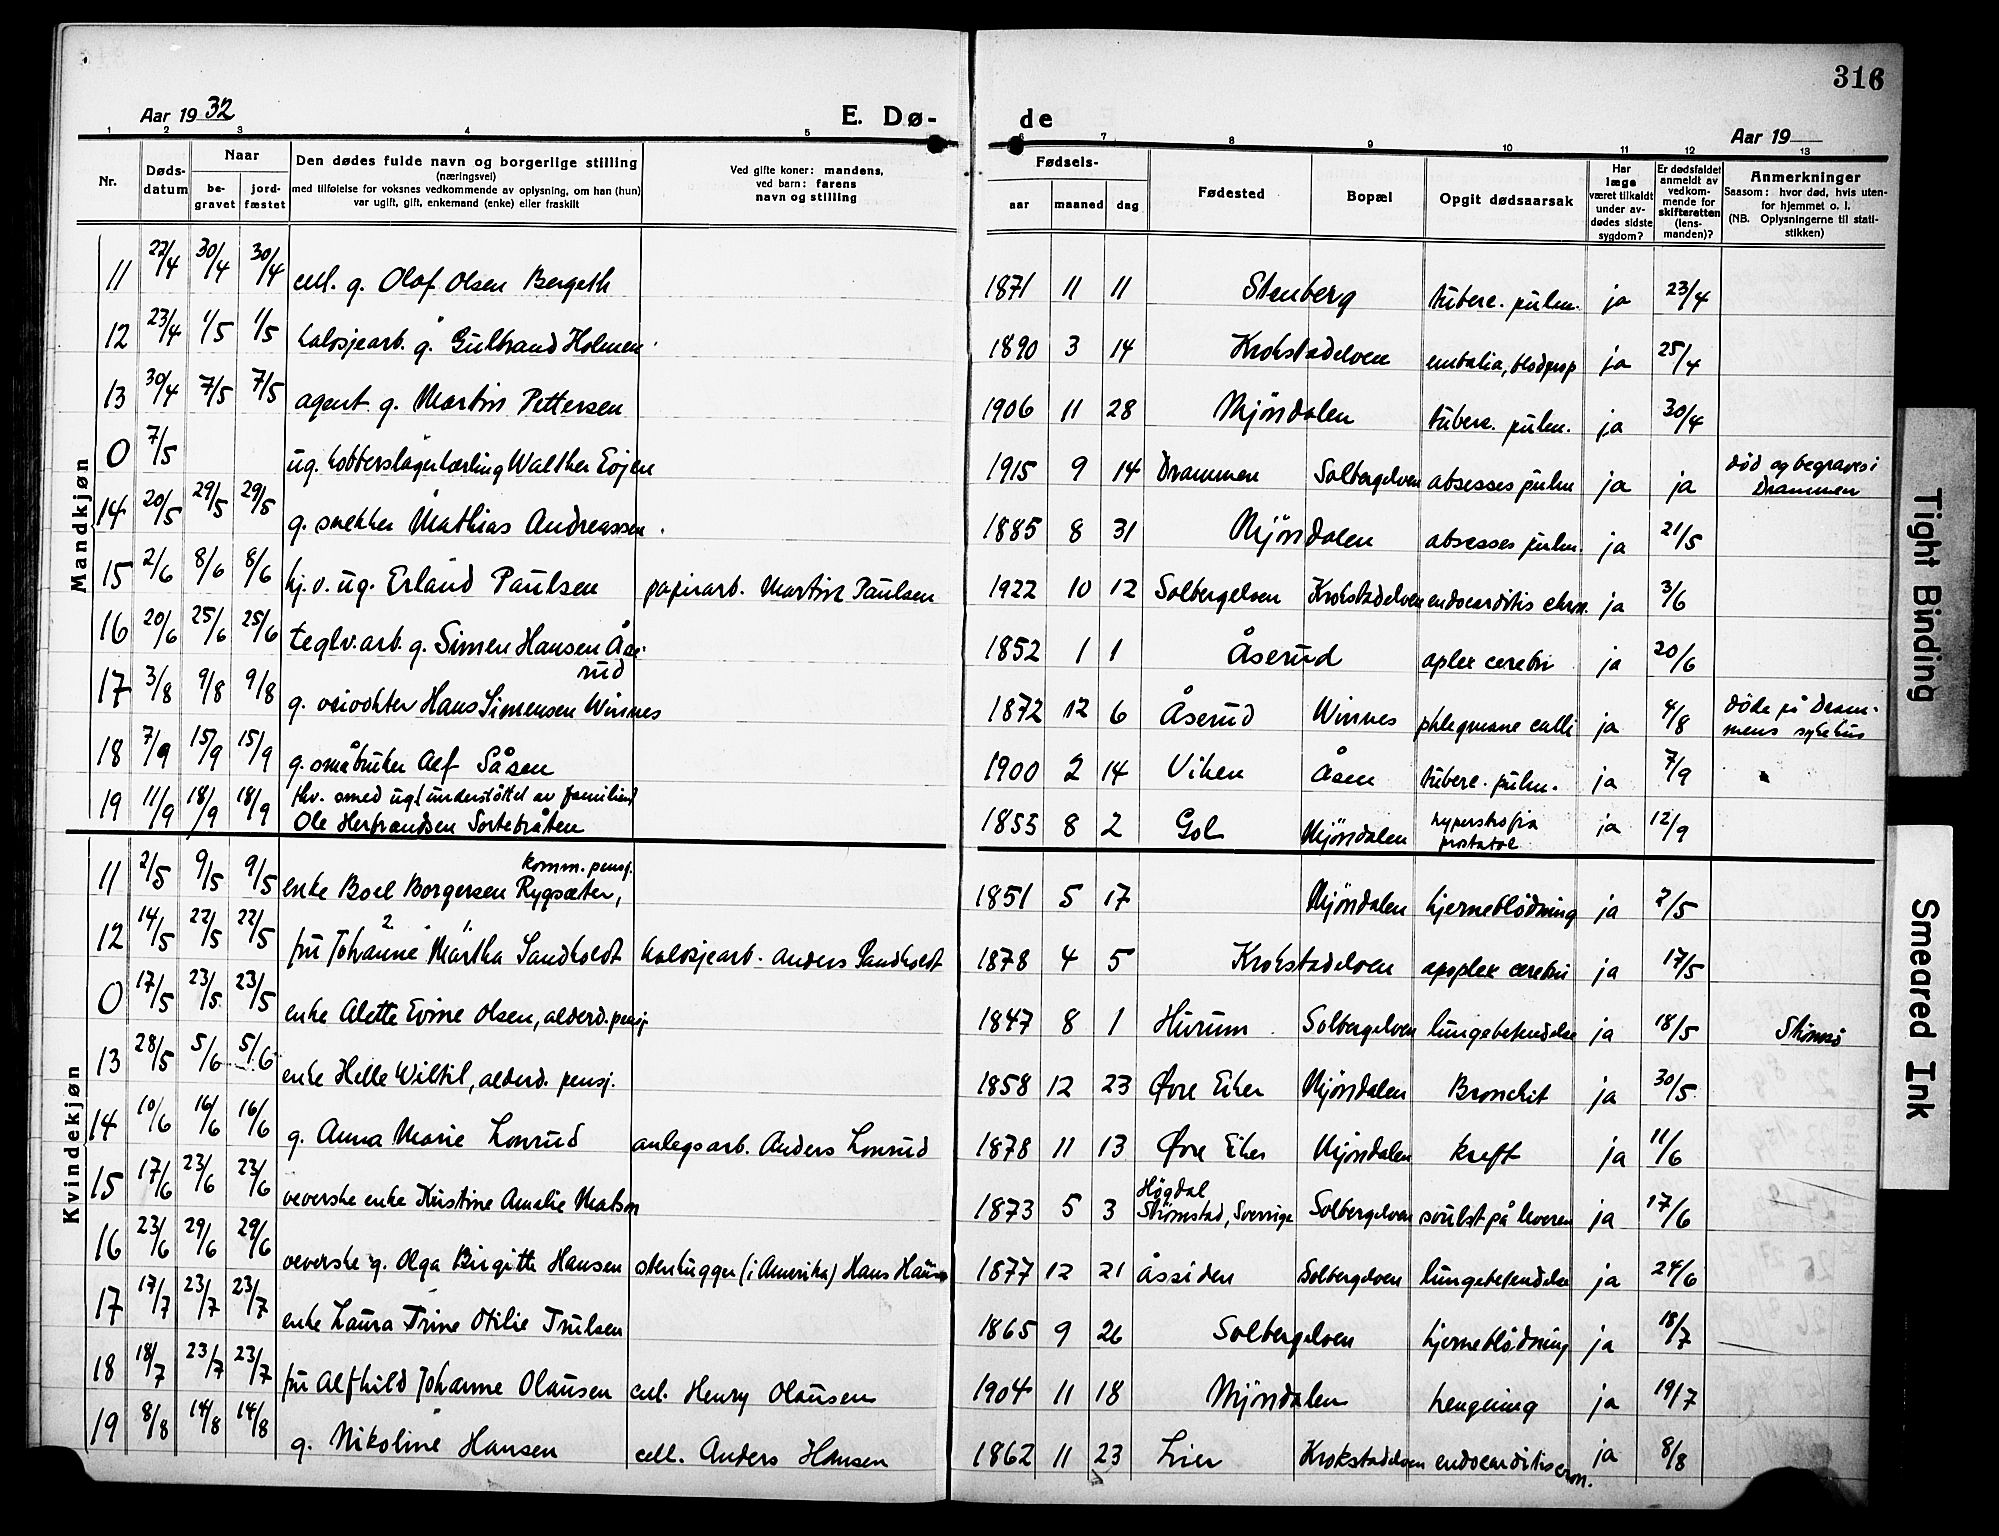 316
Aar 1932 E. Dø- de Aar 19
1 2 3 4 5 6 7 8 9 10 11 12 13
Nr. Døds-datum Naar be-gravet jord-fæstet Den dødes fulde navn og borgerlige stilling (næringsvei) med tilføielse for voksnes vedkommende av oplysning, om han (hun) var ugift, gift, enkemand (enke) eller fraskilt Ved gifte koner: mandens, ved barn: farens navn og stilling Fødsels- aar maaned dag Fødested Bopæl Opgit dødsaarsak Har læge været tilkaldt under av-dødes sidste sygdom? Er dødsfaldet anmeldt av vedkom-mende for skifteretten (lens-manden)? Anmerkninger Saasom: hvor død, hvis uten-for hjemmet o. l. (NB. Oplysningerne til stati-stikken)
Mandkjøn
11 22/4 30/4 30/4 cell. g. Olaf Olsen Bergeth 1871 11 11 Stenberg tuberc. pulm. ja 23/4
12 23/4 1/5 1/5 kalosjearb. g. Gulbrand Holmen 1890 3 14 Krokstadelven embolia, blodprop ja 25/4
13 30/4 7/5 7/5 agent g. Martin Pettersen 1906 11 28 Mjöndalen tuberc. pulm. ja 30/4
0 7/5 ug. kobberslagerlærling Walther 1915 9 14 Drammen Solbergelven absesses pulm ja ja død og begraves i Drammen
14 20/5 29/5 29/5 g. snekker Mathias Andreassen 1885 8 31 Mjöndalen absesses pulm. ja 21/5
15 2/6 8/6 8/6 hj. v. ug. Erland Paulsen papirarb. Martin Paulsen 1922 10 12 Solbergelven Krokstadelven endocarditis chron. ja 3/6
16 20/6 25/6 25/6 teglv.arb. g. Simen Hansen Åse-
rud 1852 1 1 Åserud aplex cerebri ja 20/6
17 3/8 9/8 9/8 g. veivokter Hans Simensen Winnes 1872 12 6 Åserud Winnes phlegmone colli ja 4/8 døde på Dram-mens sykehus
18 7/9 15/9 15/9 g. småbruker Alf Såsen 1900 2 14 Viken Åsen tuberc. pulm. ja 7/9
19 11/9 18/9 18/9 fhv. smed ugt understöttet av familien
Ole Herbrandsen Sortebråten 1853 8 2 Gol Mjöndalen hyperstrofia prostatae ja 12/9
Kvindekjøn
11 2/5 9/5 9/5 enke Boel Borgersen Rygsæter, komm. pensj. 1851 5 17 Mjöndalen hjerneblödning ja 2/5
12 14/5 22/5 22/5 fru Johanne 2 Martha 1 Sandholdt kalosjearb. Anders Sandholdt 1878 4 5 Krokstadelven apoplex cerebri ja 17/5
0 17/5 23/5 23/5 enke Alette Evine Olsen, alderd. pensj 1847 8 1 Hurum Solbergelven lungebetendelse ja 18/5 Strömsö
13 28/5 5/6 5/6 enke Helle Wiltil, alderd. pensj. 1858 12 23 Övre Eiker Mjöndalen Bronchit ja 30/5
14 10/6 16/6 16/6 g. Anna Marie Lonrud anlegsarb. Anders Lonrud 1878 11 13 Övre Eiker Mjöndalen kreft ja 11/6
15 17/6 23/6 23/6 veverske enke Kristine Amalie Matson 1873 5 3 Högdal Strömstad, Sverrige Solbergelven svulst på leveren ja 17/6
16 23/6 29/6 29/6 veverske g. Olga Birgitte Hansen stenhugger (i Amerika) Hans Hansen 1877 12 21 Åssiden Solbergelven lungebetendelse ja 24/6
17 17/7 23/7 23/7 enke Laura Trine Otilie Trulsen 1865 9 26 Solbergelven hjerneblödning ja 18/7
18 18/7 23/7 23/7 fru Alfhild Johanne Olausen cell. Henry Olausen 1904 11 18 Mjöndalen hengning ja 19/7
19 8/8 14/8 14/8 g. Nikoline Hansen cell. Anders Hansen 1862 11 23 Lier Krokstadelven endocarditis cron. ja 8/8
Tight Binding
Smeared Ink